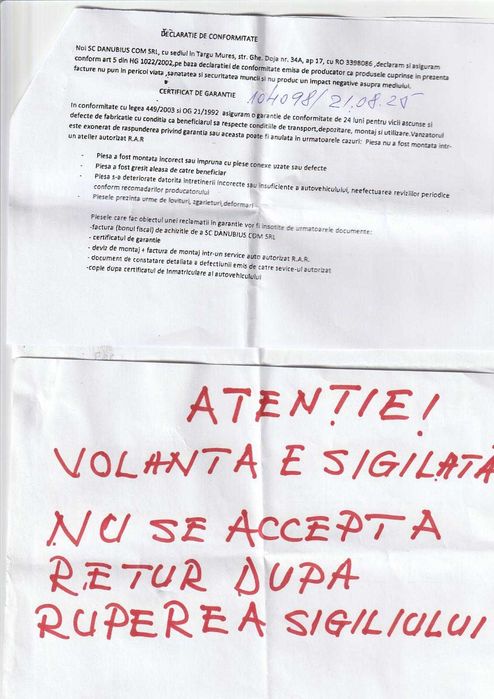 DECLARATIE DE CONFORMITATE
Noi SC DANUBIUS COM SRL, cu sediul in Targu Mures, str. Ghe. Doja nr. 34A, ap 17, cu RO 3398086 ,declaram si asiguram
conform art 5 din HG 1022/2002,pe baza declaratiei de conformitate emisa de producator ca produsele cuprinse in prezenta
facture nu pun in pericol viata ,sanatatea si securitatea muncii si nu produc un impact negative asupra mediului.
CERTIFICAT DE GARANTIE 104098/21.08.25
In conformitate cu legea 449/2003 si OG 21/1992 asiguram o garantie de conformitate de 24 luni pentru vicii ascunse si
defecte de fabricatie cu conditia ca beneficiarul sa respecte conditiile de transport,depozitare, montaj si utilizare.Vanzatorul
este exonerat de raspunderea privind garantia sau aceasta poate fi anulata in urmatoarele cazuri: Piesa nu a fost montata intr-
un atelier autorizat R.A.R
- Piesa a fost montata incorect sau impruna cu piese conexe uzate sau defecte
- Piesa a fost gresit aleasa de catre beneficiar
- Piesa s-a deteriorate datorita intretinerii incorecte sau insuficiente a autovehiculului, neefectuarea reviziilor periodice
conform recomadarilor producatorului
- Piesele prezinta urme de lovituri, zgarieturi,deformari
Piesele care fac obiectul unei reclamatii in garantie vor fi insotite de urmatoarele documente:
-factura (bonul fiscal) de achizitie de a SC DANUBIUS COM SRL
- certificatul de garantie
- deviz de montaj + factura de montaj intr-un service auto autorizat R.A.R.
- document de constatare detaliata a defectiunii emis de catre sevice-ul autorizat
-copie dupa certificatul de inmatriculare al autovehiculului
ATENȚIE!
VOLANTA E SIGILATĂ
NU SE ACCEPTA
RETUR DUPA
RUPEREA SIGILIULUI